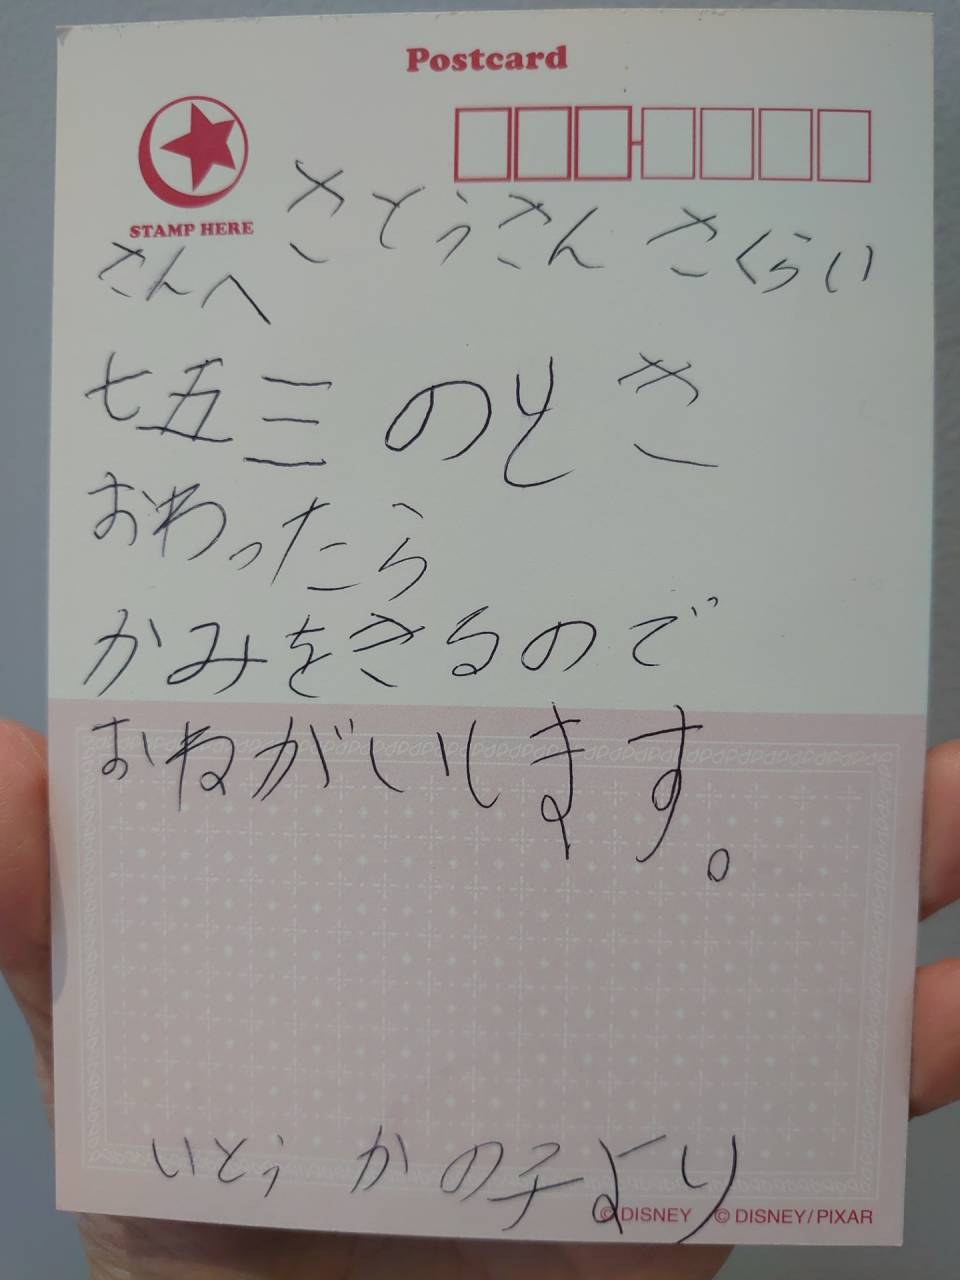 Postcard
STAMP HERE
さとうさん さくらい
さんへ
七五三のとき
おわったら
かみをきるので
おねがいします。
いとう かの子より
© DISNEY © DISNEY/PIXAR